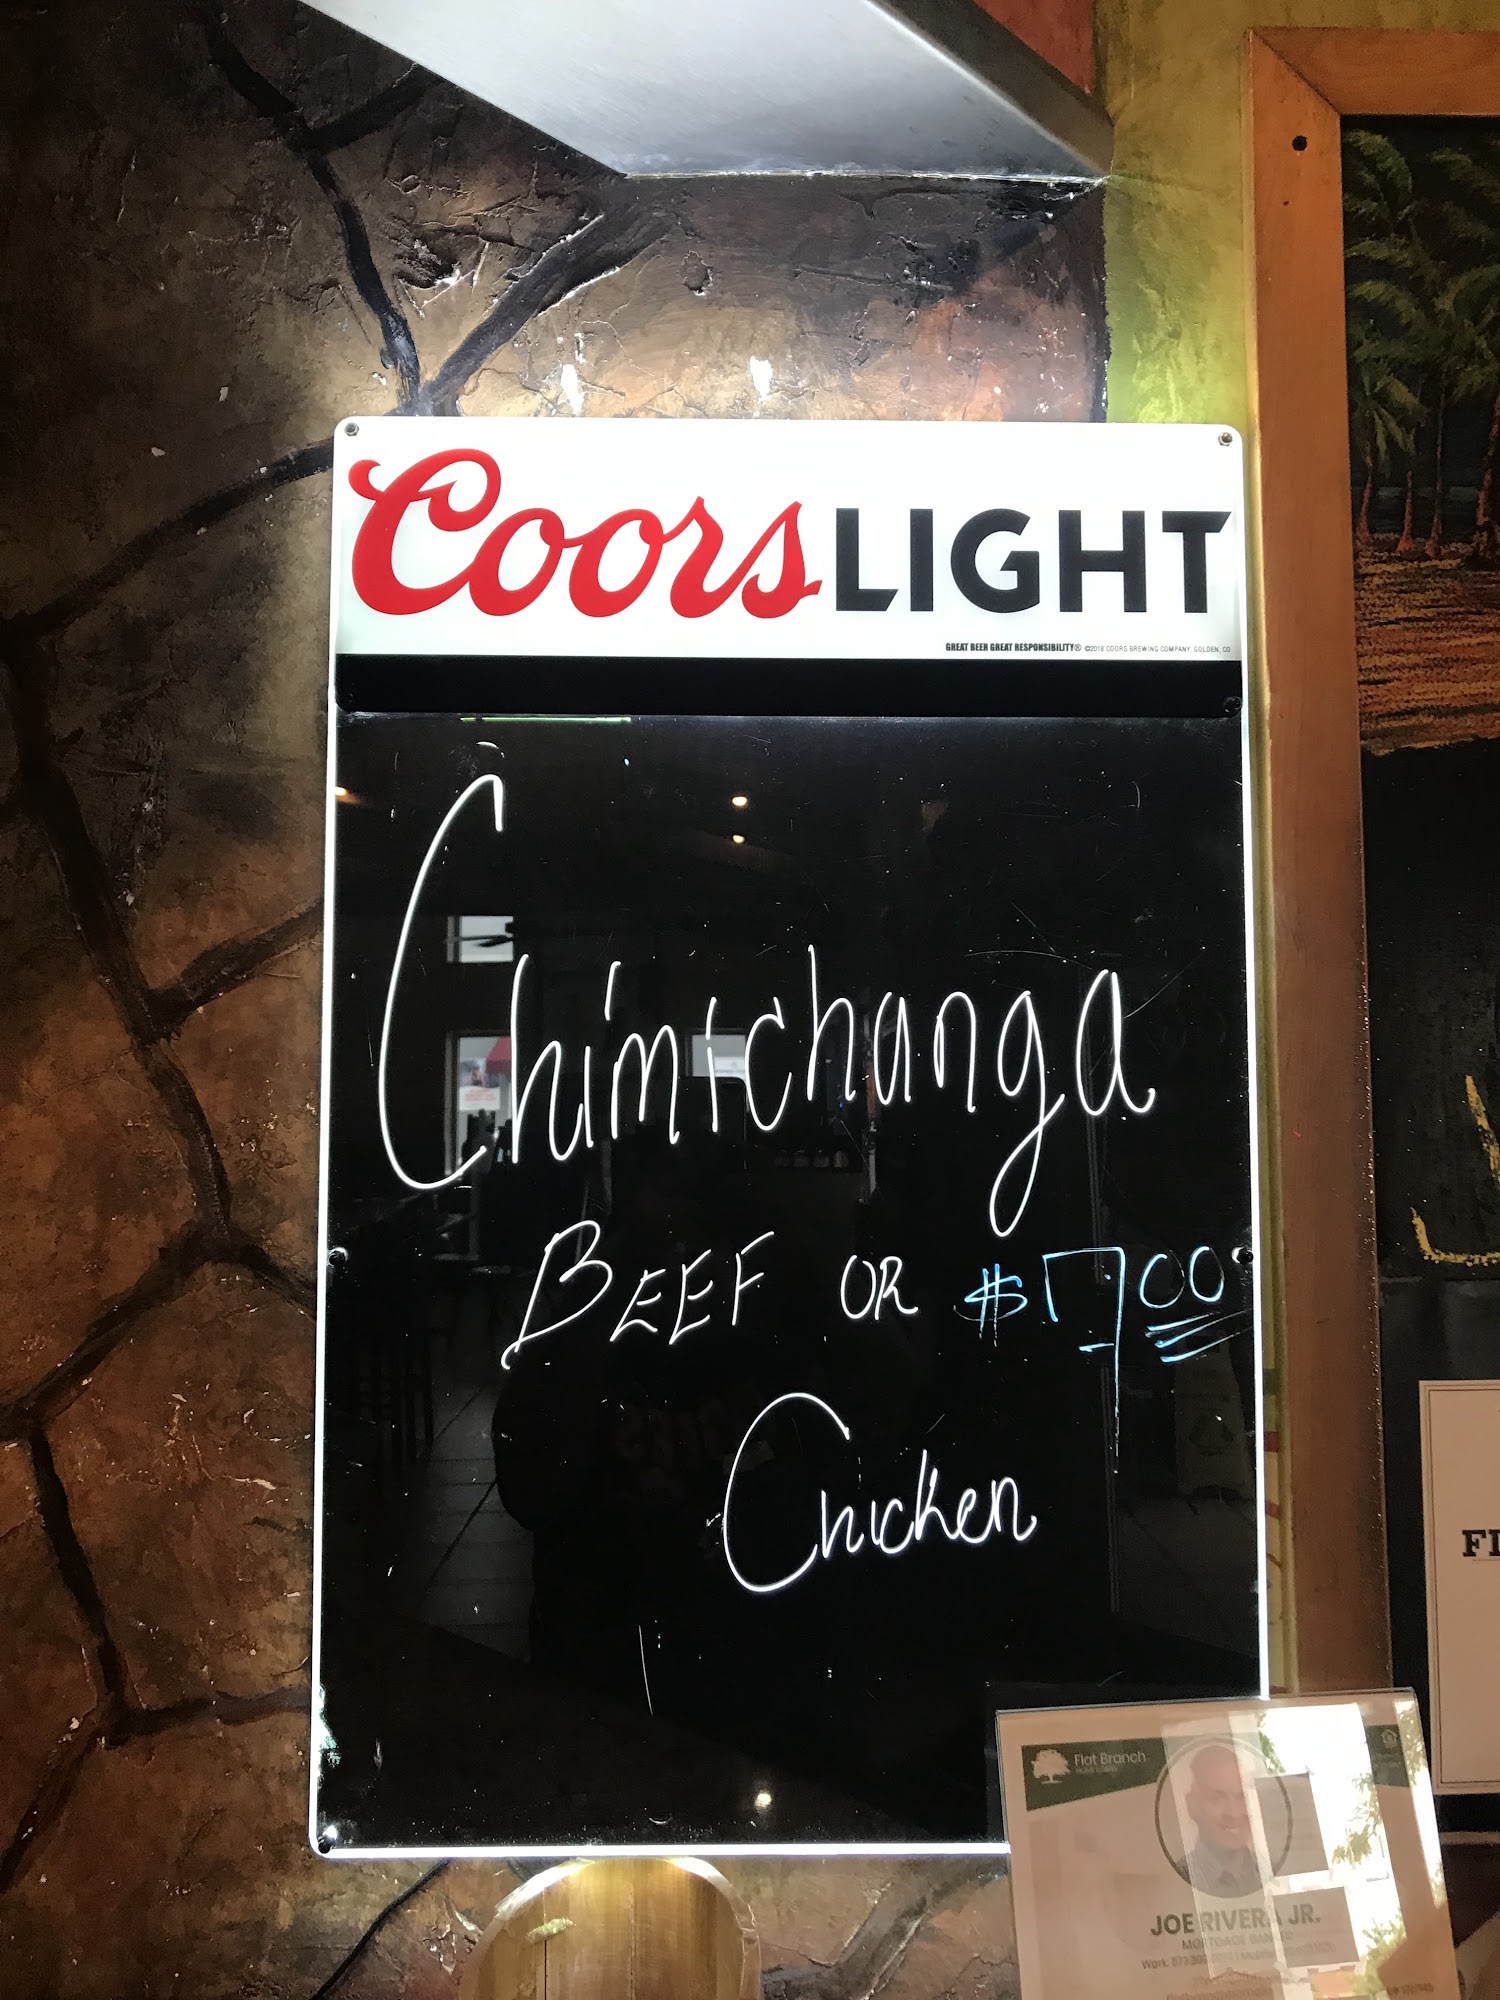 Coors LIGHT
GREAT BEER GREAT RESPONSIBILITY® ©2018 COORS BREWING COMPANY, GOLDEN, CO
Chimichanga
BEEF OR $17.00
Chicken
Flat Branch
HOME LOANS
JOE RIVERA JR.
MORTGAGE BANKER
Work.